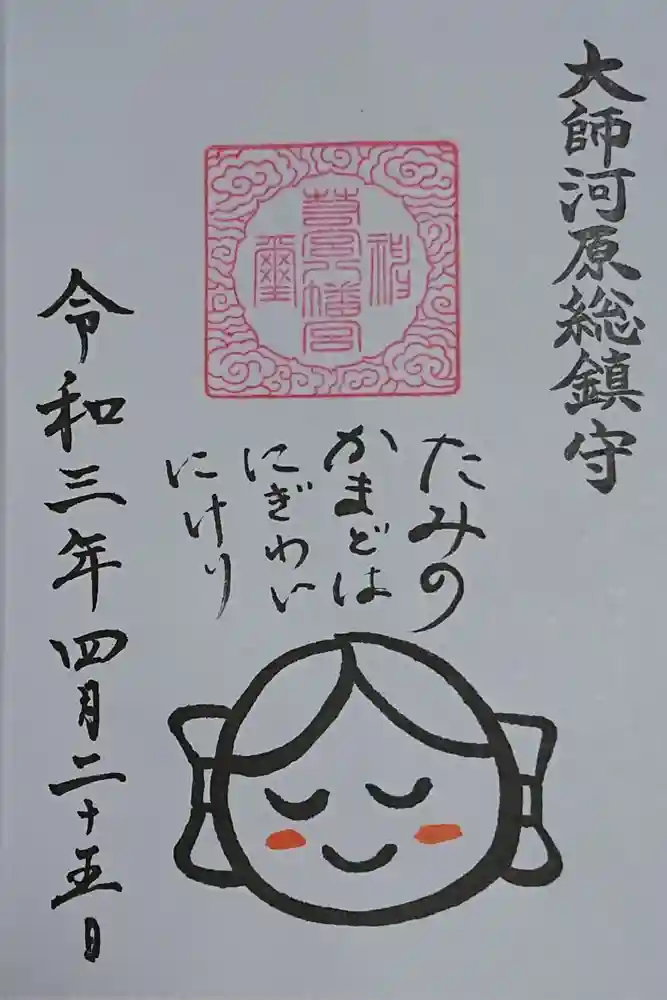 大師河原総鎮守
若宮八幡宮
たみの
かまどは
にぎわい
にけり
令和三年四月二十五日